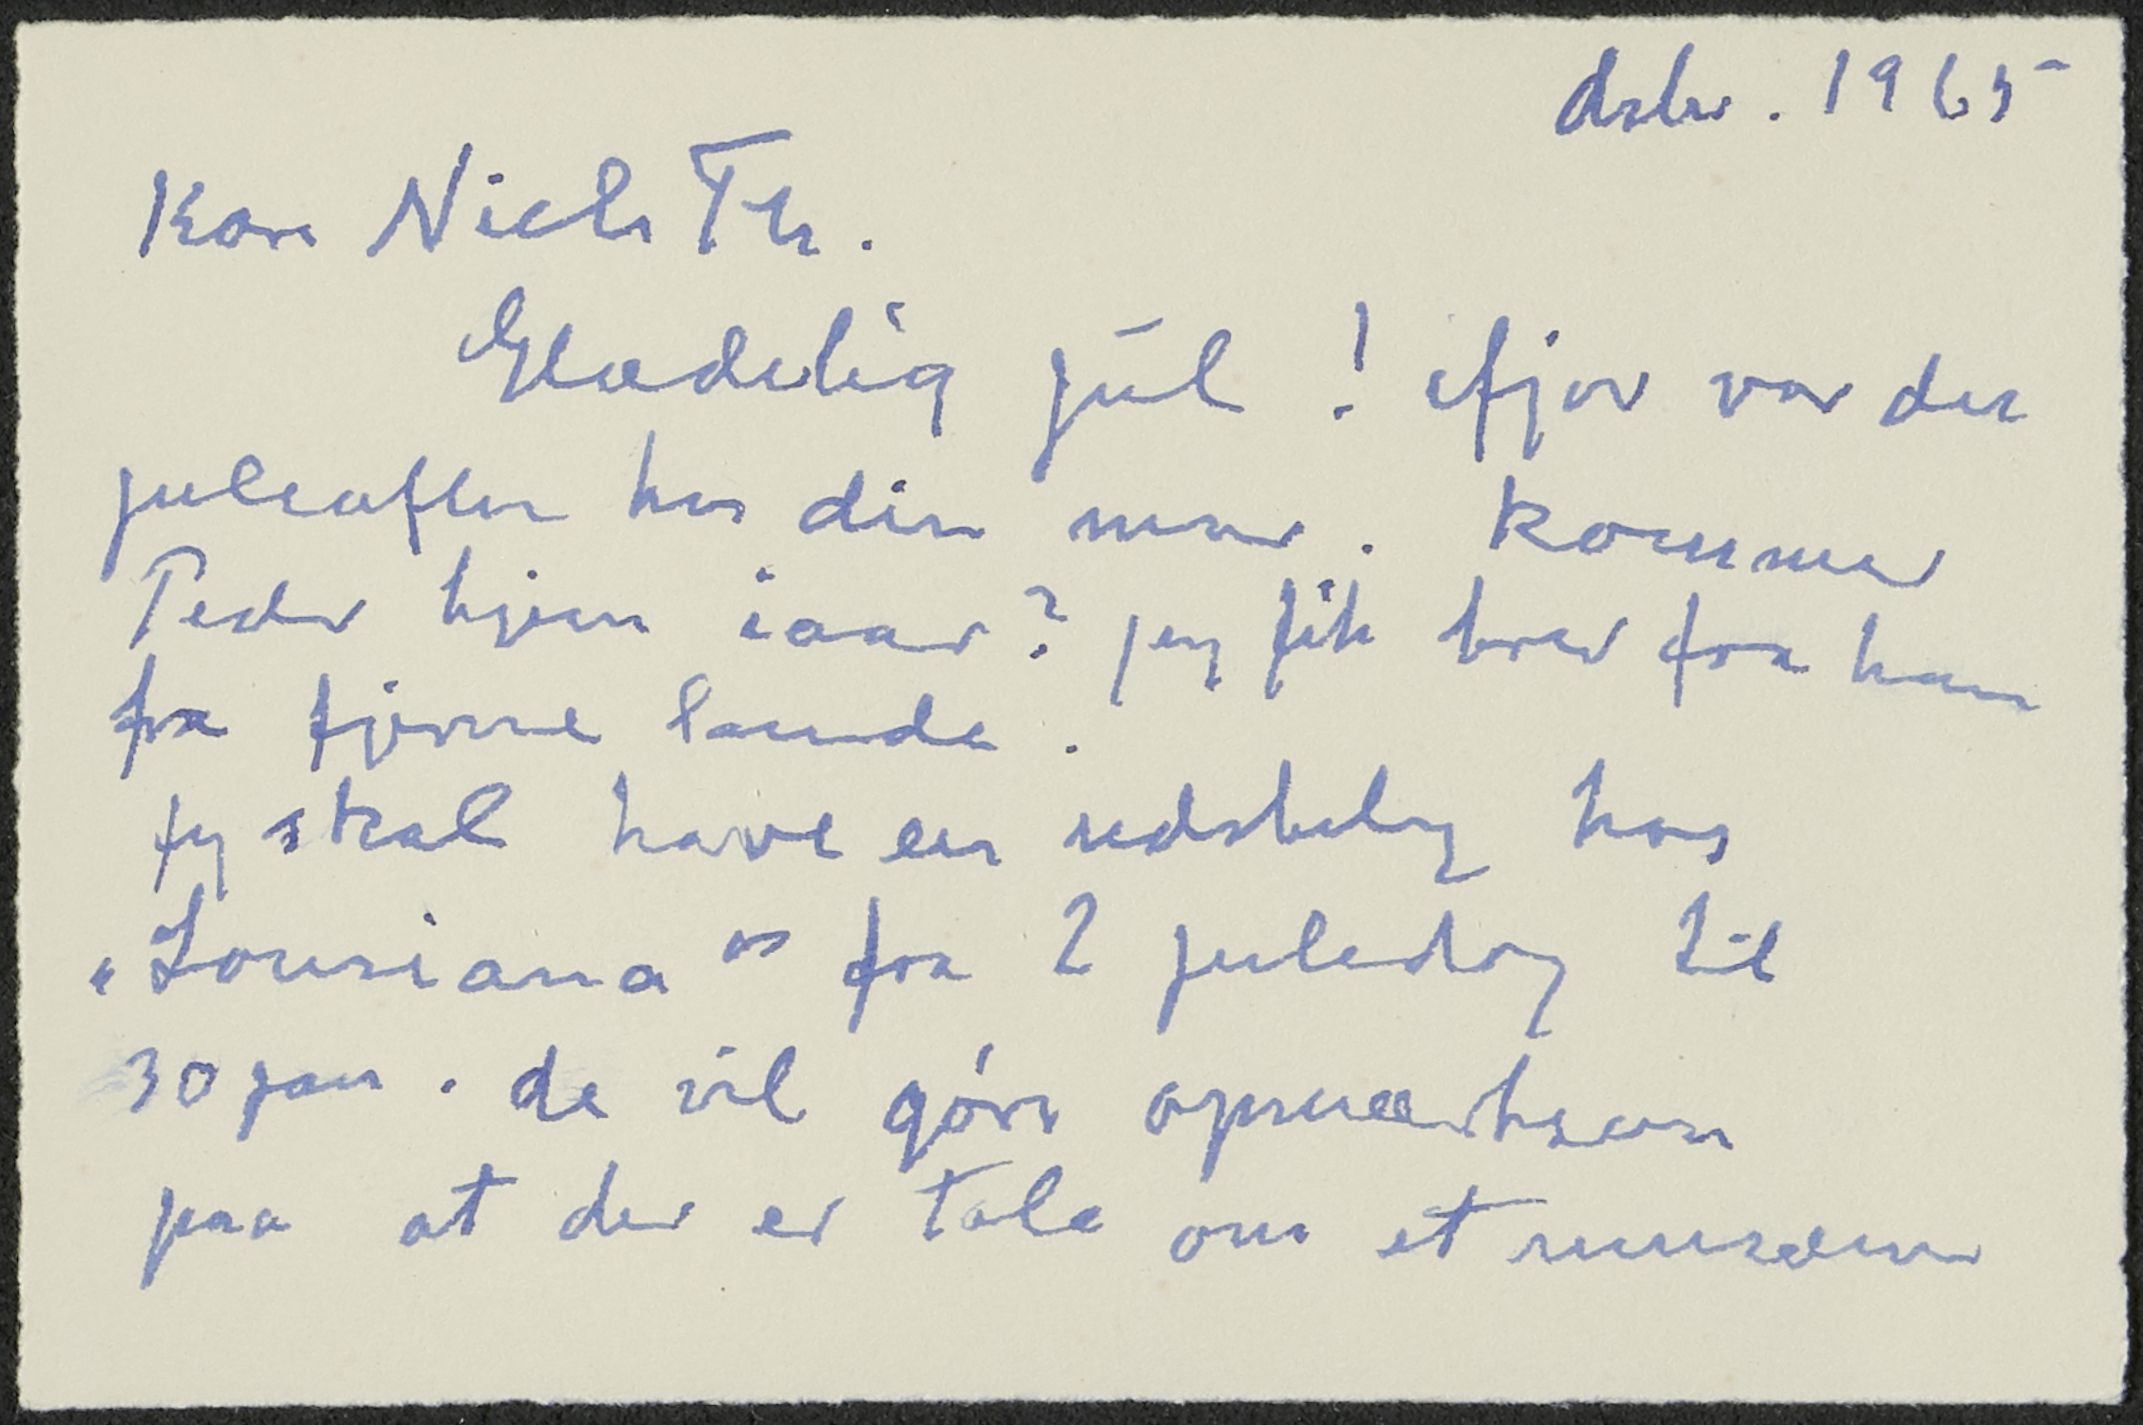 dsbr. 1965
Kære Niels Th.
Glædelig jul! ifjor var der
juleaften hos din mor. Kommer
Peder hjem iaar? jeg fik brev fra ham
fra fjerne lande.
jeg skal have en udstilling hos
"Louisiana" fra 2 juledag til
30 jan. de vil göre opmærksom
paa at der er tale om et museum